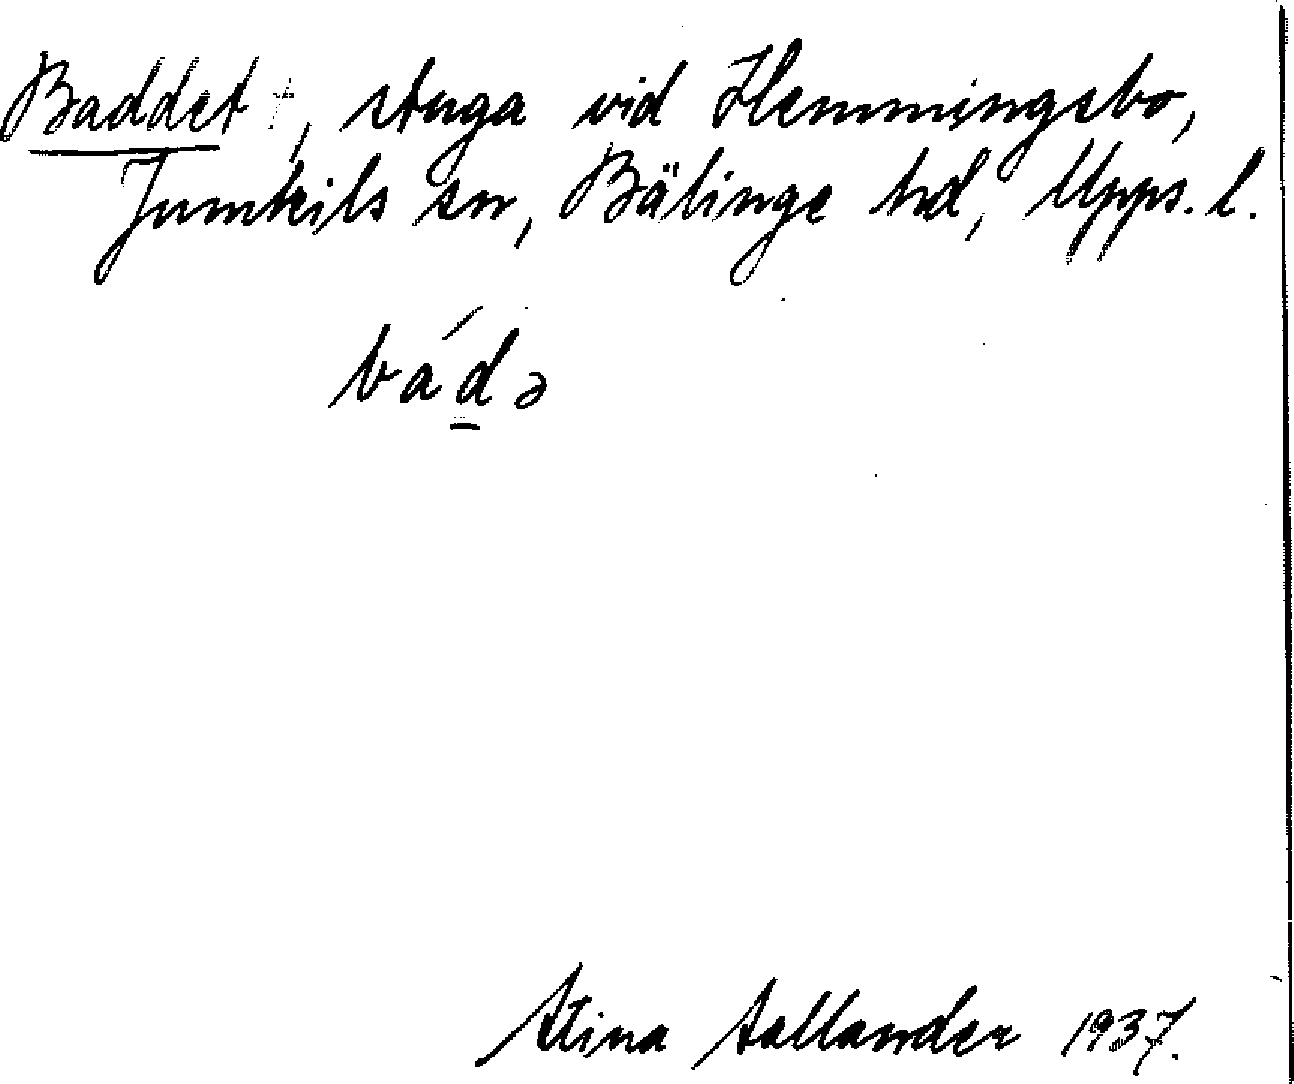 Baddet †, stuga vid Hemmingsbo,
Jumkils sn, Bälinge hd, Upps. l.
bád̲ə
Stina Sallander 1937.